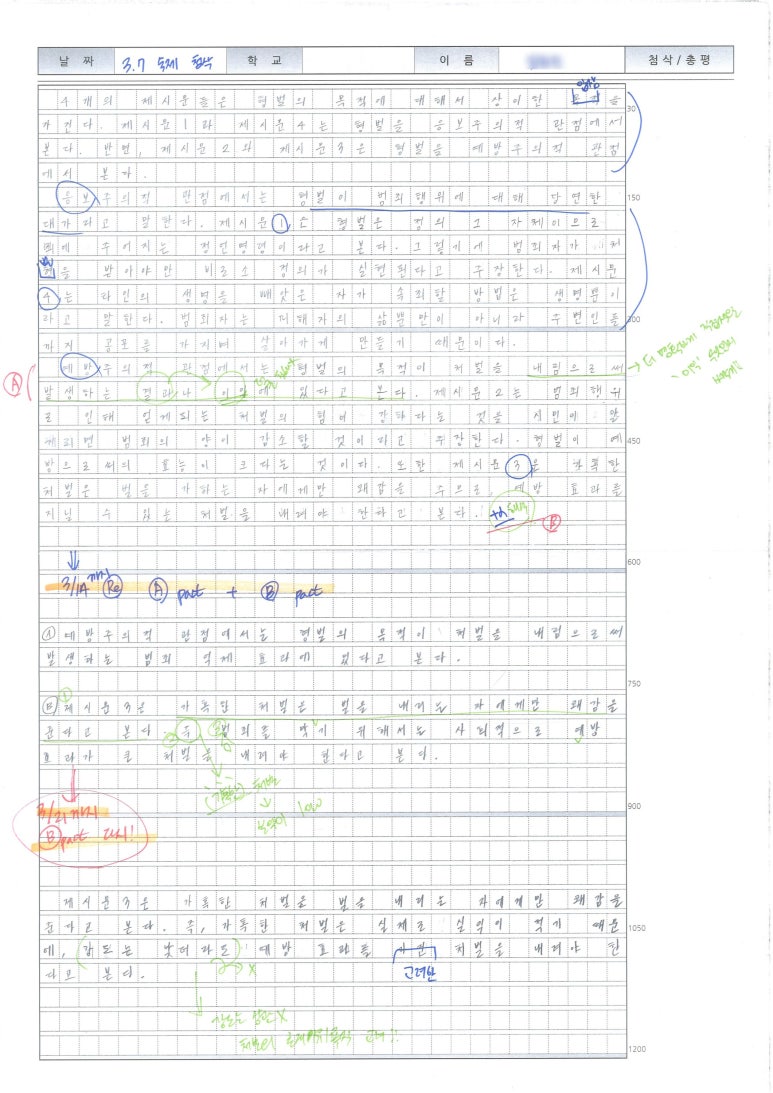 날 짜 3.7 숙제 첨삭 학 교 이 름 첨삭/총평
입장
4개의 제시문들은 형벌의 목적에 대해서 상이한 을
30
가진다. 제시문1과 제시문4는 형벌을 응보주의적 관점에서
본다. 반면, 제시문2와 제시문3은 형벌을 예방주의적 관점
에서 본다.
응보주의적 관점에서는 형벌이 범죄행위에 대해 당연한
150
대가라고 말한다. 제시문1은 형벌은 정의 그 자체이므로
에 주어지는 정언명령이라고 본다. 그렇기에 범죄자가 처
벌을 받아야만 비로소 정의가 실현된다고 주장한다. 제시문
4는 타인의 생명을 빼앗은 자가 속죄할 방법은 생명뿐이
라고 말한다. 범죄자는 피해자의 삶뿐만이 아니라 주변인들
300
까지 공포를 가지며 살아가게 만들기 때문이다.
예방주의적 관점에서는 형벌의 목적이 처벌을 내림으로써
→ 더 명확하게
Ⓐ
발생하는 결과나 이익에 있다고 본다. 제시문2는 범죄행위
로 인해 얻게되는 처벌의 힘이 강하다는 것을 시민이 알
450
게되면 범죄의 양이 감소할 것이라고 주장한다. 형벌이 예
방으로써의 효능이 크다는 것이다. 또한 제시문3은 가혹한
처벌은 벌을 가하는 자에게만 쾌감을 주므로, 예방 효과를
지닐 수 있는 처벌을 내려야 한다고 본다.
Ⓑ
600
3/14까지 Re Ⓐ part + Ⓑ part
Ⓐ 예방주의적 관점에서는 형벌의 목적이 처벌을 내림으로써
발생하는 범죄 억제 효과에 있다고 본다.
750
Ⓑ 제시문3은 가혹한 처벌은 벌을 내리는 자에게만 쾌감을
준다고 본다. 즉 범죄를 막기 위해서는 사회적으로 예방
효과가 큰 처벌을 내려야 한다고 본다.
(가혹한) 처벌
↓
900
3/21까지
Ⓑ part 다시!
제시문3은 가혹한 처벌은 벌을 내리는 자에게만 쾌감을
준다고 본다. 즉, 가혹한 처벌은 실제로 실익이 적기 때문
1050
에, 강도는 낮더라도 예방 효과를 처벌을 내려야 한
다고 본다.
고려한
1200